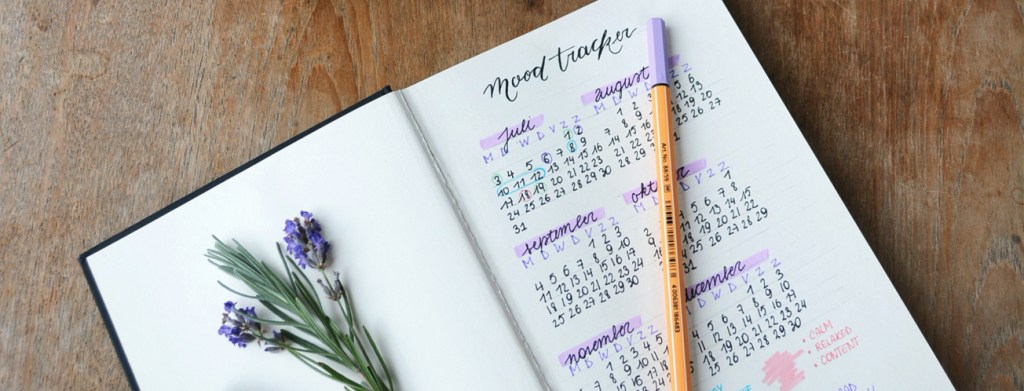 mood tracker
juli
M D W D V Z Z
1 2
3 4 5 6 7 8 9
10 11 12 13 14 15 16
17 18 19 20 21 22 23
24 25 26 27 28 29 30
31
august
M D W D
Z Z
1 2 3
5 6
7 8 9
12 13
14 15 16
18 19 20
21 22 23
25 26 27
28 29 30
31
september
M D W D V Z Z
1 2 3
4 5 6 7 8 9 10
11 12 13 14 15 16 17
18 19 20 21 22 23 24
25 26 27 28 29 30
okt
M D
D V Z Z
1
2
5 6 7 8
9
12 13 14 15
16
19 20 21 22
23
26 27 28 29
30
31
november
M D W D V Z Z
1 2 3 4
december
D W D V Z Z
1 2 3
4 5 6 7 8 9 10
11 12 13 14 15 16 17
18 19 20 21 22 23 24
25 26 27 28 29 30
• CALM
• RELAXED
• CONTENT
Art.No. 88/59
4 006381 186483